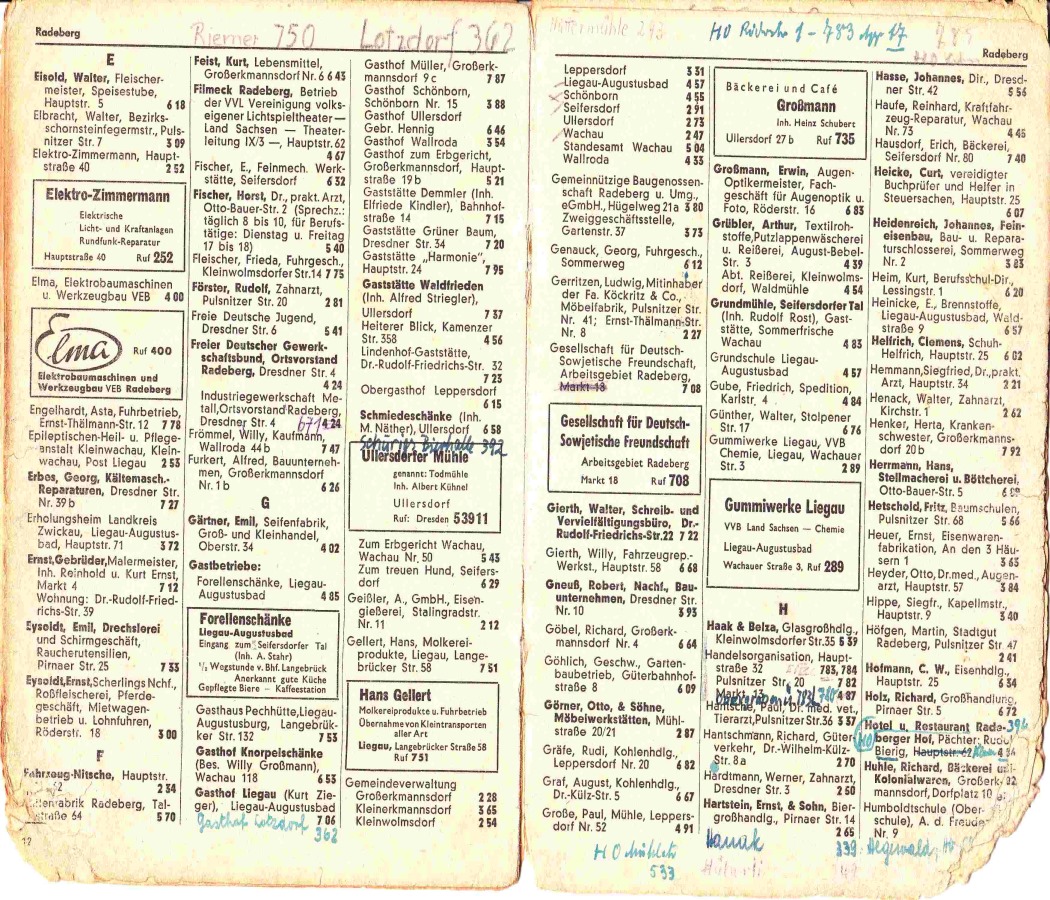 Radeberg
Riemer 750
Lotzdorf 362
E
Eisold, Walter, Fleischer-
meister, Speisestube,
Hauptstr. 5 6 18
Elbracht, Walter, Bezirks-
schornsteinfegermstr., Puls-
nitzer Str. 7 3 09
Elektro-Zimmermann, Haupt-
straße 40 2 52
Elektro-Zimmermann
Elektrische
Licht- und Kraftanlagen
Rundfunk-Reparatur
Hauptstraße 40 Ruf 252
Elma, Elektrobaumaschinen
u. Werkzeugbau VEB 4 00
Elma
Ruf 400
Elektrobaumaschinen und
Werkzeugbau VEB Radeberg
Engelhardt, Asta, Fuhrbetrieb,
Ernst-Thälmann-Str. 12 7 78
Epileptischen-Heil- u. Pflege-
anstalt Kleinwachau, Klein-
wachau, Post Liegau 2 53
Erbes, Georg, Kältemasch.-
Reparaturen, Dresdner Str.
Nr. 39b 7 27
Erholungsheim Landkreis
Zwickau, Liegau-Augustus-
bad, Hauptstr. 71 3 72
Ernst, Gebrüder, Malermeister,
Inh. Reinhold u. Kurt Ernst,
Markt 4 7 12
Wohnung: Dr.-Rudolf-Fried-
richs-Str. 39
Eysoldt, Emil, Drechslerei
und Schirmgeschäft,
Raucherutensilien,
Pirnaer Str. 25 7 33
Eysoldt, Ernst, Scherlings Nchf.,
Roßfleischerei, Pferde-
geschäft, Mietwagen-
betrieb u. Lohnfuhren,
Röderstr. 18 3 00
F
Fahrzeug-Nitsche, Hauptstr.
2 34
fabrik Radeberg, Tal-
straße 64 5 70
12
Feist, Kurt, Lebensmittel,
Großerkmannsdorf Nr. 6 6 43
Filmeck Radeberg, Betrieb
der VVL Vereinigung volks-
eigener Lichtspieltheater —
Land Sachsen — Theater-
leitung IX/3 —, Hauptstr. 62
4 67
Fischer, E., Feinmech. Werk-
stätte, Seifersdorf 6 32
Fischer, Horst, Dr., prakt. Arzt,
Otto-Bauer-Str. 2 (Sprechz.:
täglich 8 bis 10, für Berufs-
tätige: Dienstag u. Freitag
17 bis 18) 5 40
Fleischer, Frieda, Fuhrgesch.,
Kleinwolmsdorfer Str. 14 7 75
Förster, Rudolf, Zahnarzt,
Pulsnitzer Str. 20 2 81
Freie Deutsche Jugend,
Dresdner Str. 6 5 41
Freier Deutscher Gewerk-
schaftsbund, Ortsvorstand
Radeberg, Dresdner Str. 4
4 24
Industriegewerkschaft Me-
tall, Ortsvorstand Radeberg,
Dresdner Str. 4 671 4 24
Frömmel, Willy, Kaufmann,
Wallroda 44b 7 47
Furkert, Alfred, Bauunterneh-
men, Großerkmannsdorf
Nr. 1b 6 26
G
Gärtner, Emil, Seifenfabrik,
Groß- und Kleinhandel,
Oberstr. 34 4 02
Gastbetriebe:
Forellenschänke, Liegau-
Augustusbad 4 85
Forellenschänke
Liegau-Augustusbad
Eingang zum Seifersdorfer Tal
(Inh. A. Stahr)
½ Wegstunde v. Bhf. Langebrück
Anerkannt gute Küche
Gepflegte Biere — Kaffeestation
Gasthaus Pechhütte, Liegau-
Augustusburg, Langebrük-
ker Str. 132 7 53
Gasthof Knorpelschänke
(Bes. Willy Großmann),
Wachau 118 6 55
Gasthof Liegau (Kurt Zie-
ger), Liegau-Augustusbad
7 06
Gasthof Lotzdorf
362
Gasthof Müller, Großerk-
mannsdorf 9c 7 87
Gasthof Schönborn,
Schönborn Nr. 15 3 88
Gasthof Ullersdorf
Gebr. Hennig 6 46
Gasthof Wallroda 3 54
Gasthof zum Erbgericht,
Großerkmannsdorf, Haupt-
straße 19b 5 21
Gaststätte Demmler (Inh.
Elfriede Kindler), Bahnhof-
straße 14 7 15
Gaststätte Grüner Baum,
Dresdner Str. 34 7 20
Gaststätte „Harmonie",
Hauptstr. 24 7 95
Gaststätte Waldfrieden
(Inh. Alfred Striegler),
Ullersdorf 7 37
Heiterer Blick, Kamenzer
Str. 358 4 56
Lindenhof-Gaststätte,
Dr.-Rudolf-Friedrichs-Str. 32
7 23
Obergasthof Leppersdorf
6 15
Schmiedeschänke (Inh.
M. Näther), Ullersdorf 6 58
Schürigs Bierhalle 392
Ullersdorfer Mühle
genannt: Todmühle
Inh. Albert Kühnel
Ullersdorf
Ruf: Dresden 53911
Zum Erbgericht Wachau,
Wachau Nr. 50 5 43
Zum treuen Hund, Seifers-
dorf 6 29
Geißler, A., GmbH., Eisen-
gießerei, Stalingradstr.
Nr. 11 2 12
Gellert, Hans, Molkerei-
produkte, Liegau, Lange-
brücker Str. 58 7 51
Hans Gellert
Molkereiprodukte u. Fuhrbetrieb
Übernahme von Kleintransporten
aller Art
Liegau, Langebrücker Straße 58
Ruf 751
Gemeindeverwaltung
Großerkmannsdorf 2 28
Kleinerkmannsdorf 3 65
Kleinwolmsdorf 2 54
Hüttermühle 293
HO Röderstr 1 - 783 App 17
789
Radeberg
Leppersdorf 3 31
Liegau-Augustusbad 4 57
Schönborn 4 55
Seifersdorf 2 91
Ullersdorf 2 73
Wachau 2 47
Standesamt Wachau 5 04
Wallroda 4 33
Gemeinnützige Baugenossen-
schaft Radeberg u. Umg.,
eGmbH., Hügelweg 21a 3 80
Zweiggeschäftsstelle,
Gartenstr. 37 3 73
Genauck, Georg, Fuhrgesch.,
Sommerweg 6 12
Gerritzen, Ludwig, Mitinhaber
der Fa. Köckritz & Co.,
Möbelfabrik, Pulsnitzer Str.
Nr. 41; Ernst-Thälmann-Str.
Nr. 8 2 27
Gesellschaft für Deutsch-
Sowjetische Freundschaft,
Arbeitsgebiet Radeberg,
Markt 18 7 08
Gesellschaft für Deutsch-
Sowjetische Freundschaft
Arbeitsgebiet Radeberg
Markt 18 Ruf 708
Gierth, Walter, Schreib- und
Vervielfältigungsbüro, Dr.-
Rudolf-Friedrichs-Str. 22 7 22
Gierth, Willy, Fahrzeugrep.-
Werkst., Hauptstr. 58 6 68
Gneuß, Robert, Nachf., Bau-
unternehmen, Dresdner Str.
Nr. 10 3 93
Göbel, Richard, Großerk-
mannsdorf Nr. 4 6 64
Göhlich, Geschw., Garten-
baubetrieb, Güterbahnhof-
straße 8 6 09
Görner, Otto, & Söhne,
Möbelwerkstätten, Mühl-
straße 20/21 2 87
Gräfe, Rudi, Kohlenhdlg.,
Leppersdorf Nr. 20 6 82
Graf, August, Kohlenhdlg.,
Dr.-Külz-Str. 5 6 67
Große, Paul, Mühle, Leppers-
dorf Nr. 52 4 91
HO
533
Bäckerei und Café
Großmann
Inh. Heinz Schubert
Ullersdorf 27b Ruf 735
Großmann, Erwin, Augen-
Optikermeister, Fach-
geschäft für Augenoptik u.
Foto, Röderstr. 16 6 83
Grübler, Arthur, Textilroh-
stoffe, Putzlappenwäscherei
u. Reißerei, August-Bebel-
Str. 3 4 39
Abt. Reißerei, Kleinwolms-
dorf, Waldmühle 4 54
Grundmühle, Seifersdorfer Tal
(Inh. Rudolf Rost), Gast-
stätte, Sommerfrische
Wachau 4 83
Grundschule Liegau-
Augustusbad 4 57
Gube, Friedrich, Spedition,
Karlstr. 4 4 84
Günther, Walter, Stolpener
Str. 17 6 76
Gummiwerke Liegau, VVB
Chemie, Liegau, Wachauer
Str. 3 2 89
Gummiwerke Liegau
VVB Land Sachsen — Chemie
Liegau-Augustusbad
Wachauer Straße 3, Ruf 289
H
Haak & Belza, Glasgroßhdlg.,
Kleinwolmsdorfer Str. 35 5 39
Handelsorganisation, Haupt-
straße 32 783, 784
Pulsnitzer Str. 20 7 82
Markt 13 4 87
Hantsche, Paul, Dr. med. vet.,
Tierarzt, Pulsnitzer Str. 36 3 37
Hantschmann, Richard, Güter-
verkehr, Dr.-Wilhelm-Külz-
Str. 8a 2 70
Hardtmann, Werner, Zahnarzt,
Dresdner Str. 3 2 50
Hartstein, Ernst, & Sohn, Bier-
großhandlg., Pirnaer Str. 14
2 65
Hanak 339
Hasse, Johannes, Dir., Dresd-
ner Str. 42 5 56
Haufe, Reinhard, Kraftfahr-
zeug-Reparatur, Wachau
Nr. 73 4 46
Hausdorf, Erich, Bäckerei,
Seifersdorf Nr. 80 7 40
Heicke, Curt, vereidigter
Buchprüfer und Helfer in
Steuersachen, Hauptstr. 25
6 07
Heidenreich, Johannes, Fein-
eisenbau, Bau- u. Repara-
turschlosserei, Sommerweg
Nr. 2 3 83
Heim, Kurt, Berufsschul-Dir.,
Lessingstr. 1 6 20
Heinicke, E., Brennstoffe,
Liegau-Augustusbad, Wald-
straße 9 6 57
Helfrich, Clemens, Schuh-
Helfrich, Hauptstr. 25 6 02
Hemmann, Siegfried, Dr., prakt.
Arzt, Hauptstr. 34 2 21
Henack, Walter, Zahnarzt,
Kirchstr. 1 2 62
Henker, Herta, Kranken-
schwester, Großerkmanns-
dorf 20b 7 92
Herrmann, Hans,
Stellmacherei u. Böttcherei,
Otto-Bauer-Str. 5
Hetschold, Fritz, Baumschulen,
Pulsnitzer Str. 68 5 66
Heuer, Ernst, Eisenwaren-
fabrikation, An den 3 Häu-
sern 1 3 63
Heyder, Otto, Dr. med., Augen-
arzt, Hauptstr. 57 3 84
Hippe, Siegfr., Kapellmstr.,
Hauptstr. 9 3 40
Höfgen, Martin, Stadtgut
Radeberg, Pulsnitzer Str. 47
2 41
Hofmann, C. W., Eisenhdlg.,
Hauptstr. 25 6 34
Holz, Richard, Großhandlung,
Pirnaer Str. 5 6 72
Hotel u. Restaurant Rade- 394
HO berger Hof, Pächter: Rudolf
Bierig, Hauptstr. 62
Huhle, Richard, Bäckerei und
Kolonialwaren, Großerk-
mannsdorf, Dorfplatz 10
Humboldtschule (Ober-
schule), A. d. Freude
Nr. 9
Hegewald, HO